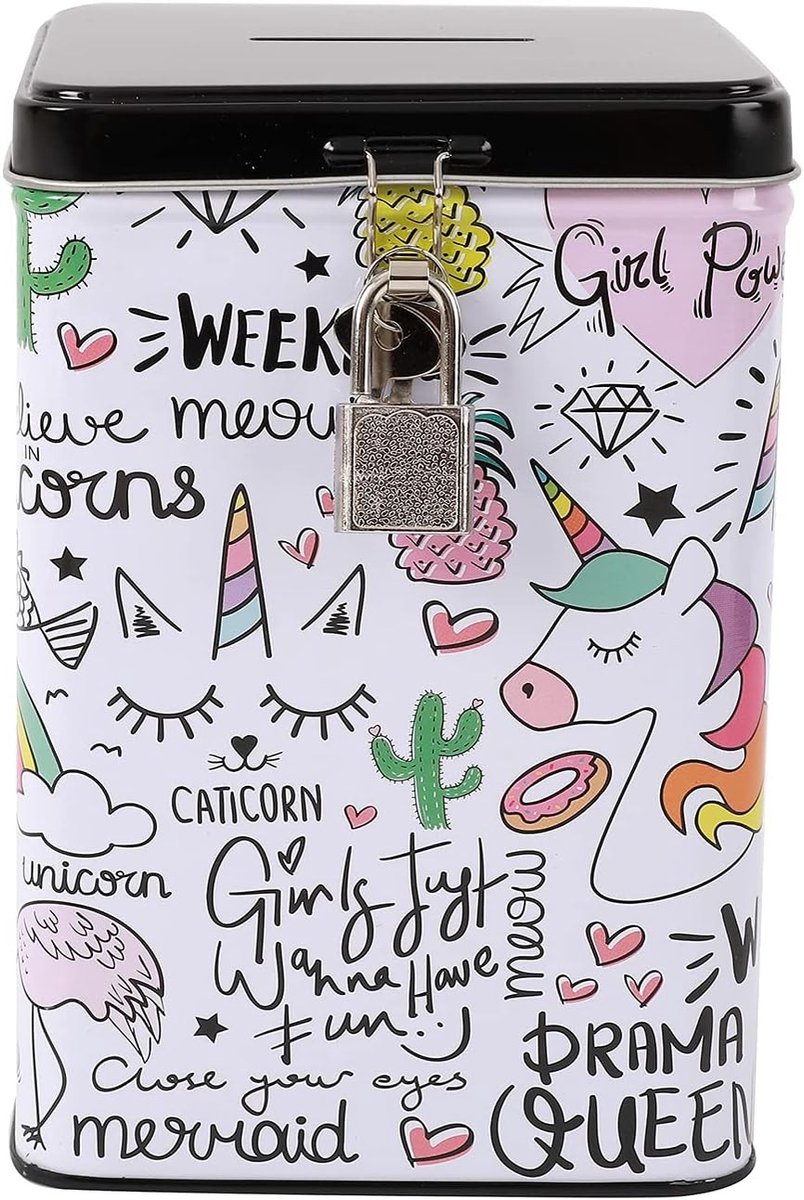 Girl Pow
WEEK
lieve
meow
IN
corns
CATICORN
unicorn
Girls Just
Wanna Have
Fun
meow
W
DRAMA
QUEEN
Close your eyes
mermaid